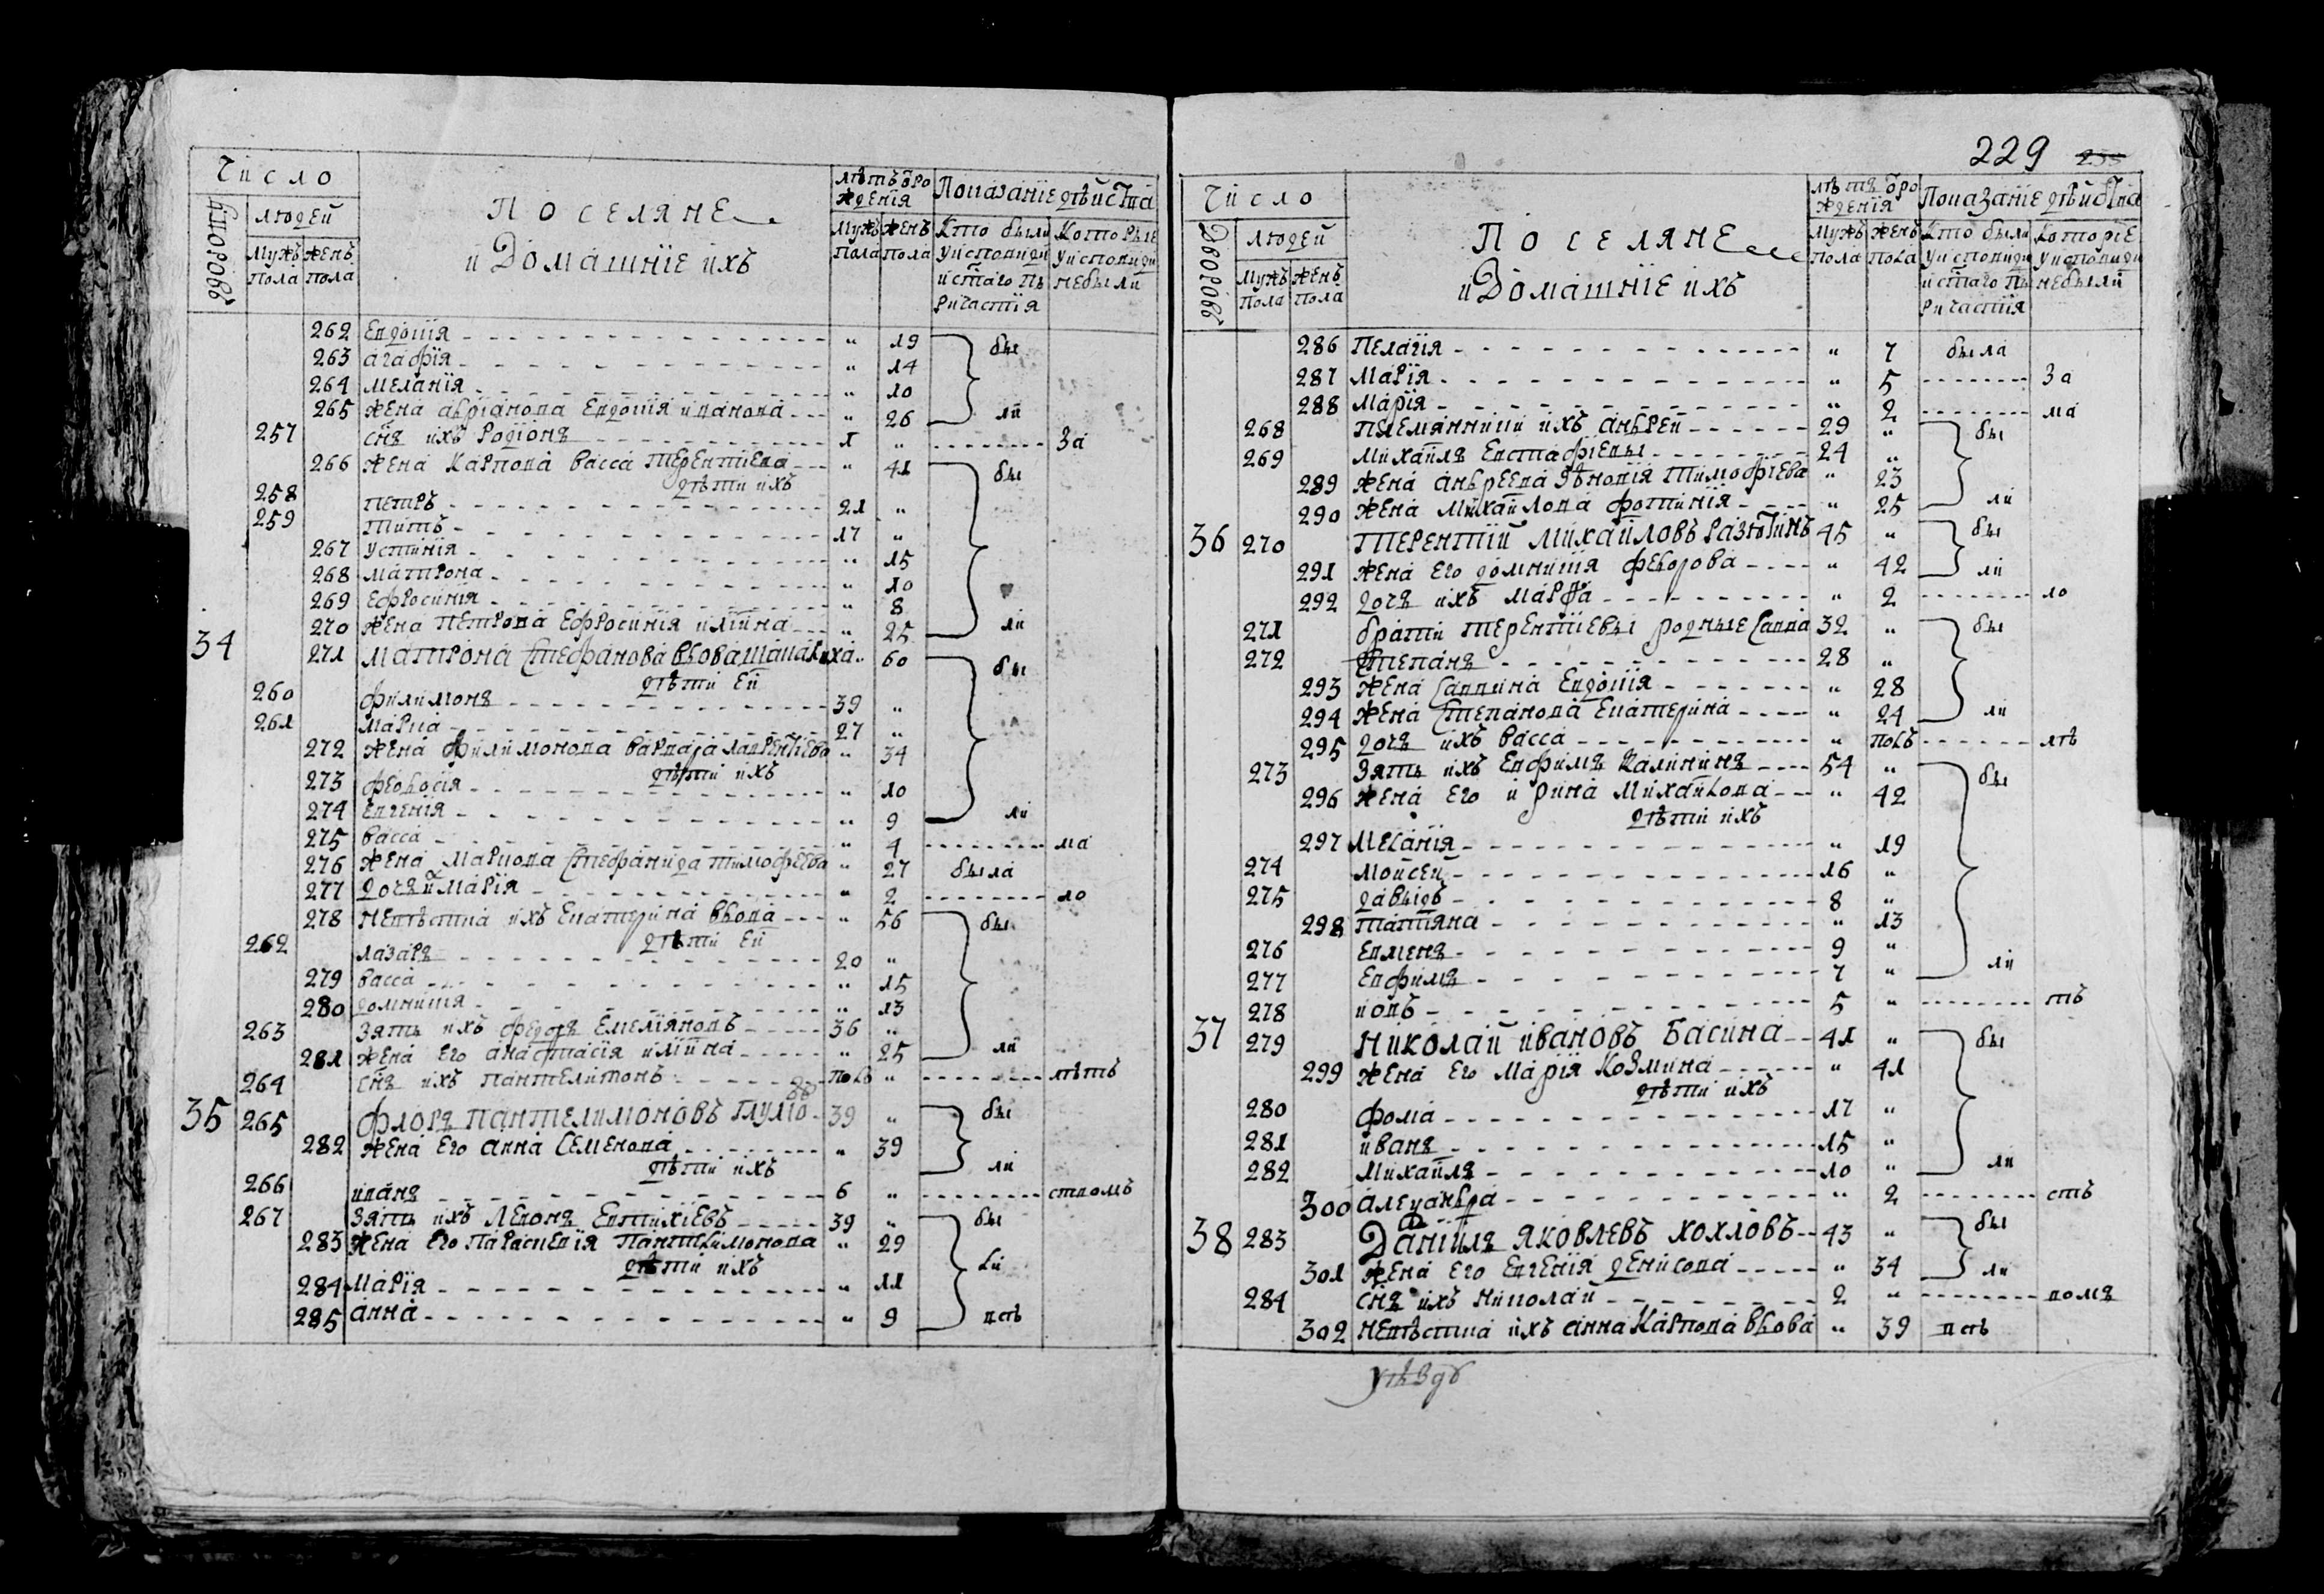 Число
дворовъ
людей
Мужъ пола
Женъ пола
Поселяне
и Домашніе ихъ
лѣтъ ѿ рождения
Мужъ пола
Женъ пола
Показаніе дѣйства
Кто были у исповѣди и стаго причастія
Которые у исповѣди небыли
262 Евдокія " 19 бы
263 агафїя " 14
264 меланїя " 10
265 жена авріанова Евдокія иванова " 26 ли
257 снъ ихъ Родіонъ 1 " За
266 жена Карпова васса терентиева " 41 бы
дѣти ихъ
258 петръ 21 "
259 титъ 17 "
267 устинїя " 15
268 матрона " 10
269 Ефросинїя " 8
270 жена петрова Ефросинїя илїина " 25 ли
34 271 Матрона Стефанова вдова " 60 бы
дѣти Ей
260 филимонъ 39 "
261 марка 27 "
272 жена филимонова варвара лаврентїева " 34
дѣти ихъ
273 феодосія " 10
274 Евгенїя " 9 ли
275 васса " 4 ма
276 жена Маркова Стефанида тимофеева " 27 была
277 дочъ и Марїя " 2 ло
278 невѣстка ихъ Екатерина вдова " 56 бы
дѣти Ей
262 лазаръ 20 "
279 васса " 15
280 домникія " 13
263 зять ихъ федоръ Емелїяновъ 36 "
281 жена Его анастасія илїина " 25 ли
264 снъ ихъ пантелимонъ полъ " лѣтъ
35 265 флоръ пантелимоновъ 39 " бы
282 жена Его анна Семенова " 39 ли
дѣти ихъ
266 иванъ 6 " ством
267 зять ихъ Левонъ Евтихїевъ 39 " бы
283 жена Его параскевїя пантелимонова " 29 ли
дѣти ихъ
284 Марїя " 11
285 анна " 9 всѣ
229 235
Число
Дворовъ
людей
Мужъ пола
женъ пола
Поселяне
и Домашніе ихъ
лѣтъ ѿ рожденїя
Мужъ пола
женъ пола
Показаніе дѣйства
Кто были у исповѣди и стаго причастїя
Которіе у исповѣди небыли
286 Пелагія " 7 была
287 Марїя " 5 За
288 Марїя " 2 ма
268 племянники ихъ андрей 29 " бы
269 михайлъ Евстафїевы 24 "
289 жена андреева зѣновїя тимофїева " 23
290 жена михайлова фотинїя " 25 ли
36 270 Терентий михайловъ 45 " бы
291 жена Его домникія федорова " 42 ли
292 дочъ ихъ марфа " 2 ло
271 брати терентиевы родные Савва 32 " бы
272 Степанъ 28 "
293 жена Саввина Евдокія " 28
294 жена Степанова Екатерина " 24 ли
295 дочъ ихъ васса " полъ лѣ
273 зять ихъ Евфимъ Калининъ 54 " бы
296 жена Его ирина Михайлова " 42
дѣти ихъ
297 Меланїя " 19
274 мойсей 16 "
275 давыдъ 8 "
298 татїяна " 13
276 Евменъ 9 "
277 Евфимъ 7 " ли
278 иовъ 5 " тъ
37 279 Николай ивановъ Басина 41 " бы
299 жена Его Марїя Козмина " 41
дѣти ихъ
280 фома 17 "
281 иванъ 15 "
282 михайлъ 10 " ли
300 алеѯандра " 2 стъ
38 283 Данїилъ яковлевъ хохловъ 43 " бы
301 жена Его Евгенїя денисова " 34 ли
284 снъ ихъ николай 2 " вомъ
302 невѣстка ихъ анна Карпова вдова " 39 всѣ
уѣзду